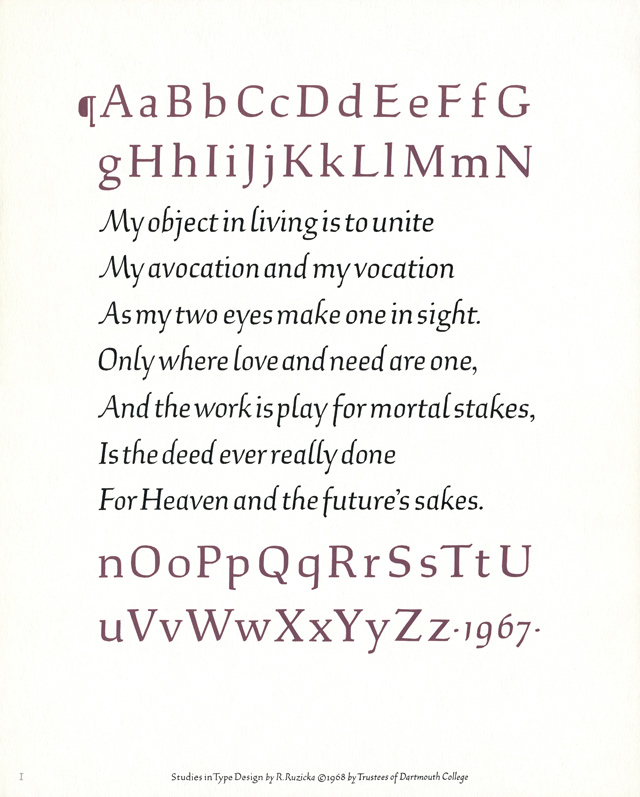 ¶AaBbCcDdEeFfG
gHhIiJjKkLlMmN
My object in living is to unite
My avocation and my vocation
As my two eyes make one in sight.
Only where love and need are one,
And the work is play for mortal stakes,
Is the deed ever really done
For Heaven and the future's sakes.
nOoPpQqRrSsTtU
uVvWwXxYyZz·1967·
I Studies in Type Design by R. Ruzicka ©1968 by Trustees of Dartmouth College